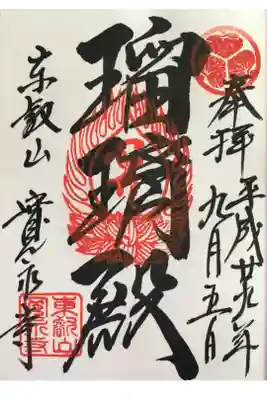 奉拝 平成廿九年
九月五日
瑠璃殿
東叡山 寛永寺
東叡山
寛永寺